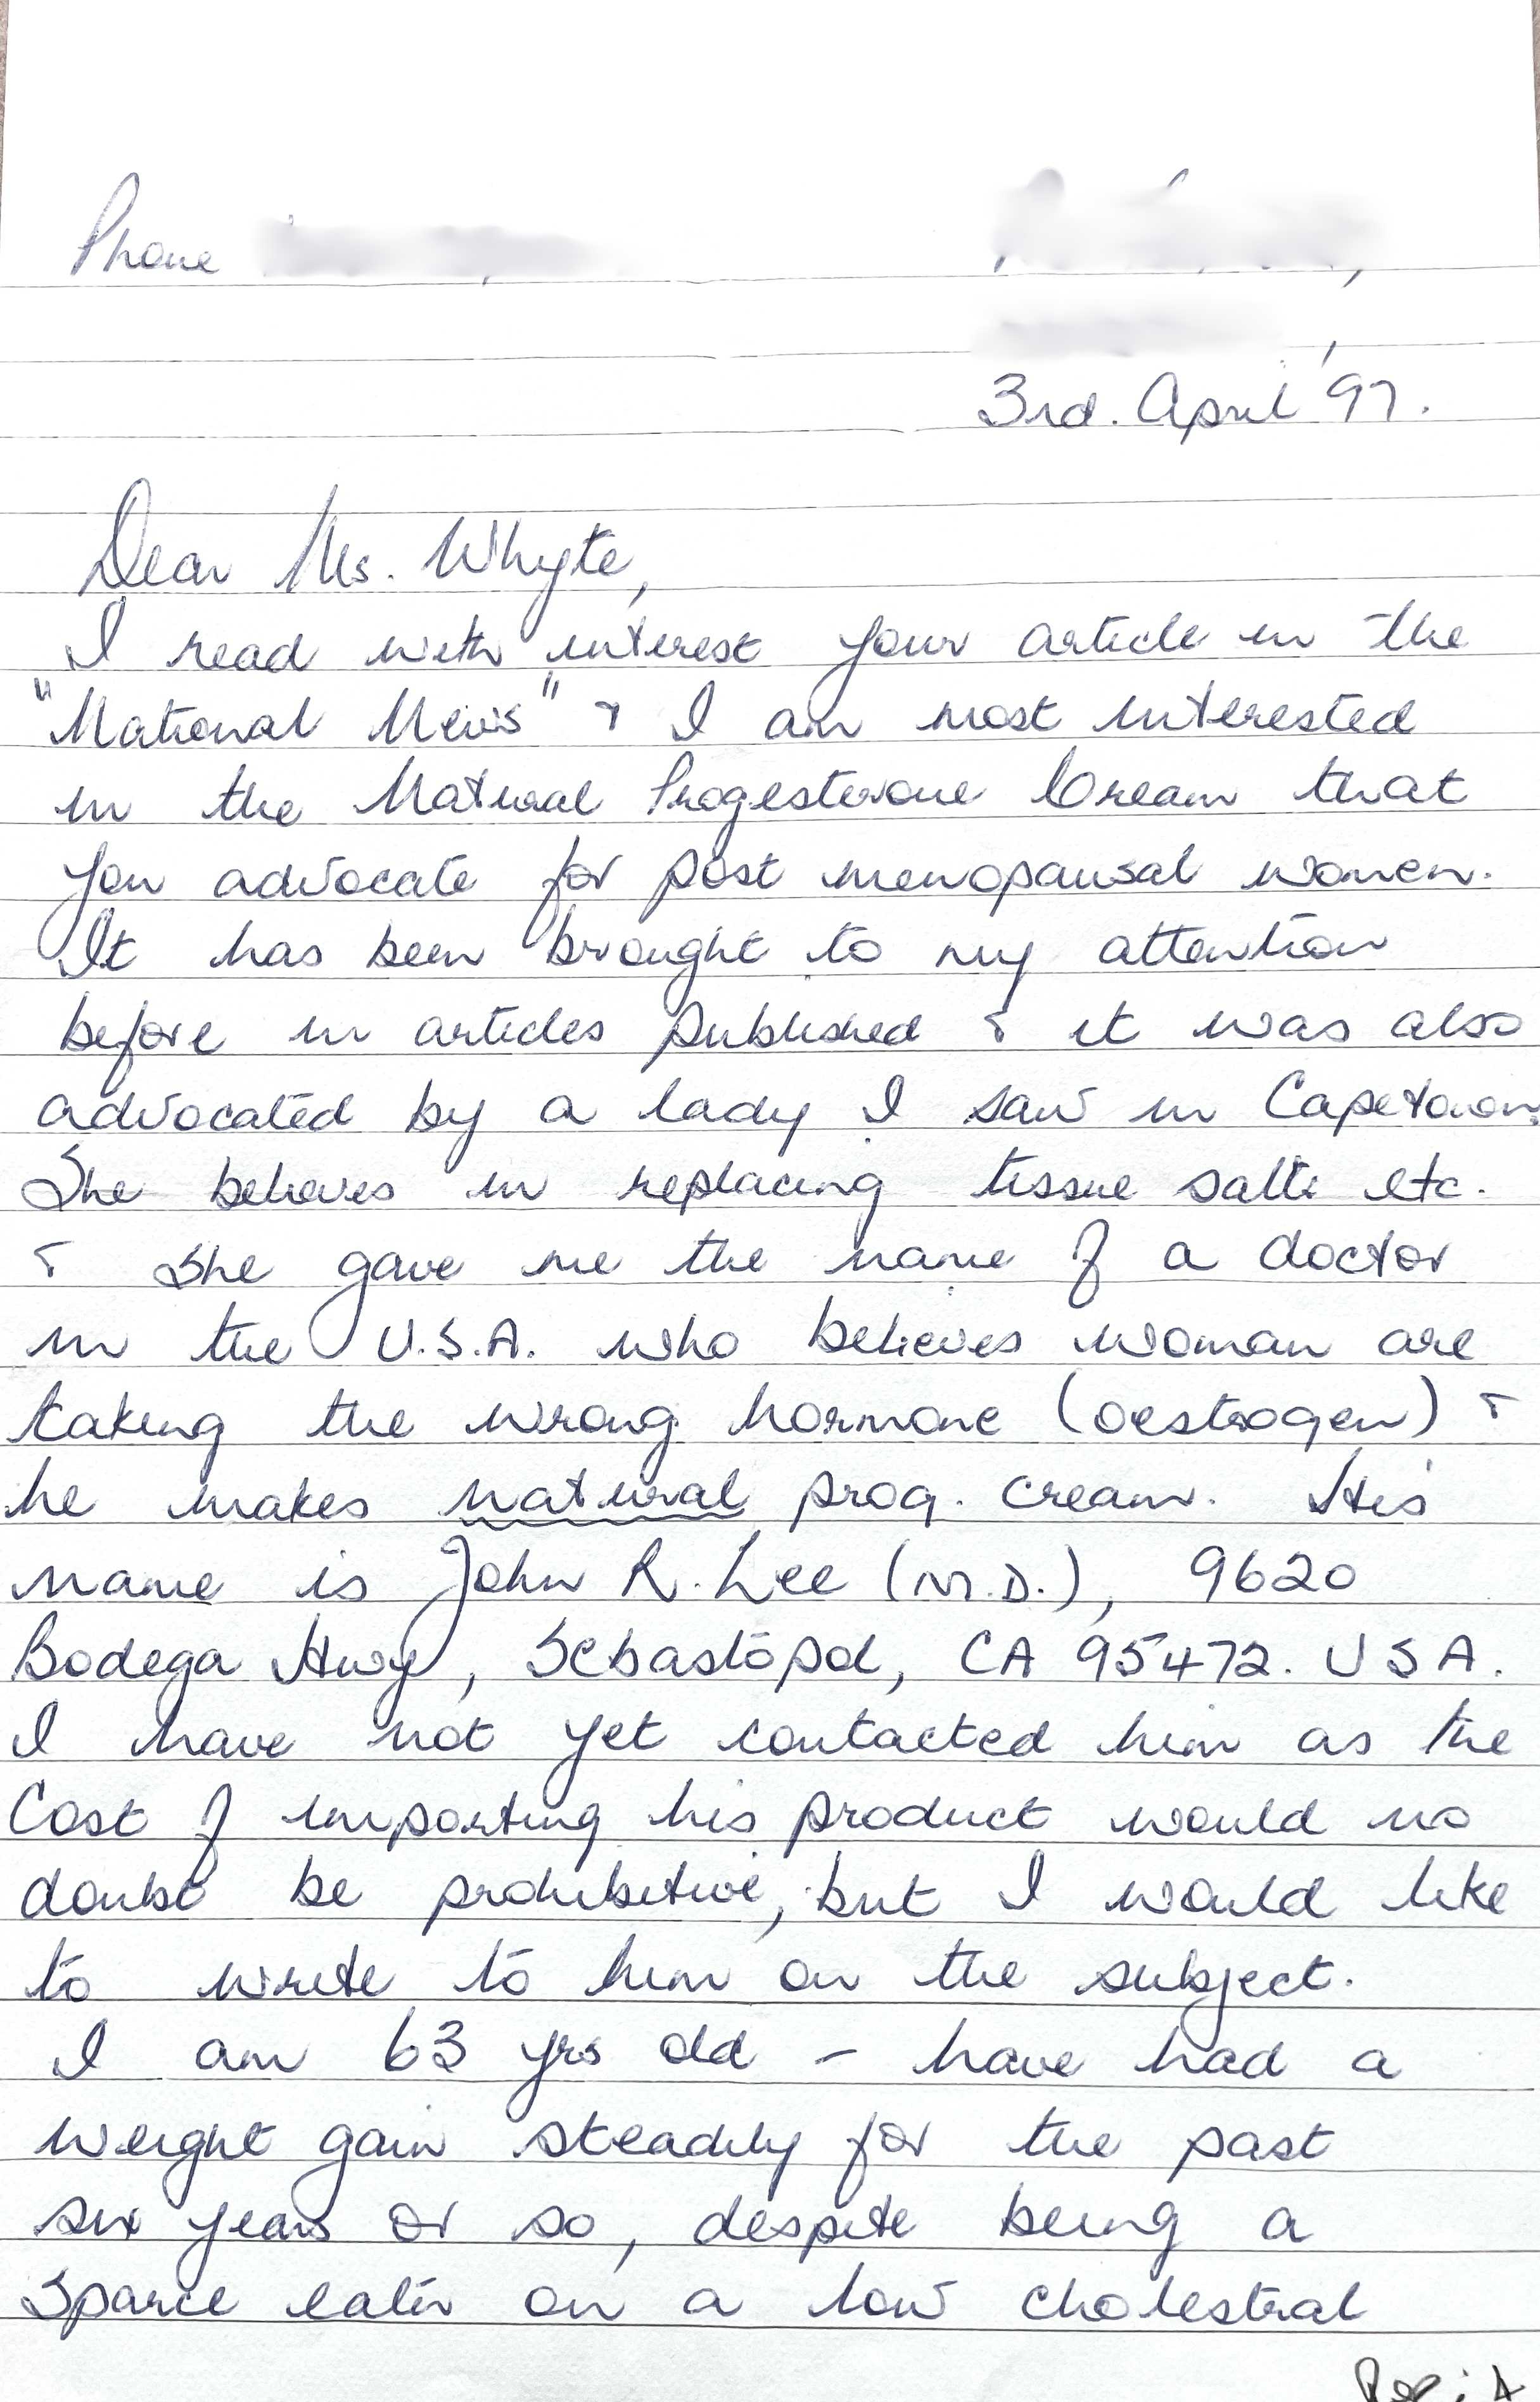 Phone
3rd. April '97.
Dear Ms. Whyte,
I read with interest your article in the
"National News" & I am most interested
in the Natural Progesterone Cream that
you advocate for post menopausal women.
It has been brought to my attention
before in articles published & it was also
advocated by a lady I saw in Capetown.
She believes in replacing tissue salts etc.
& she gave me the name of a doctor
in the U.S.A. who believes woman are
taking the wrong hormone (oestrogen) &
he makes natural prog. cream. His
name is John R. Lee (M.D.), 9620
Bodega Hwy, Sebastopol, CA 95472. USA.
I have not yet contacted him as the
cost of importing his product would no
doubt be prohibitive, but I would like
to write to him on the subject.
I am 63 yrs old - have had a
weight gain steadily for the past
six years or so, despite being a
sparce eater on a low cholestral